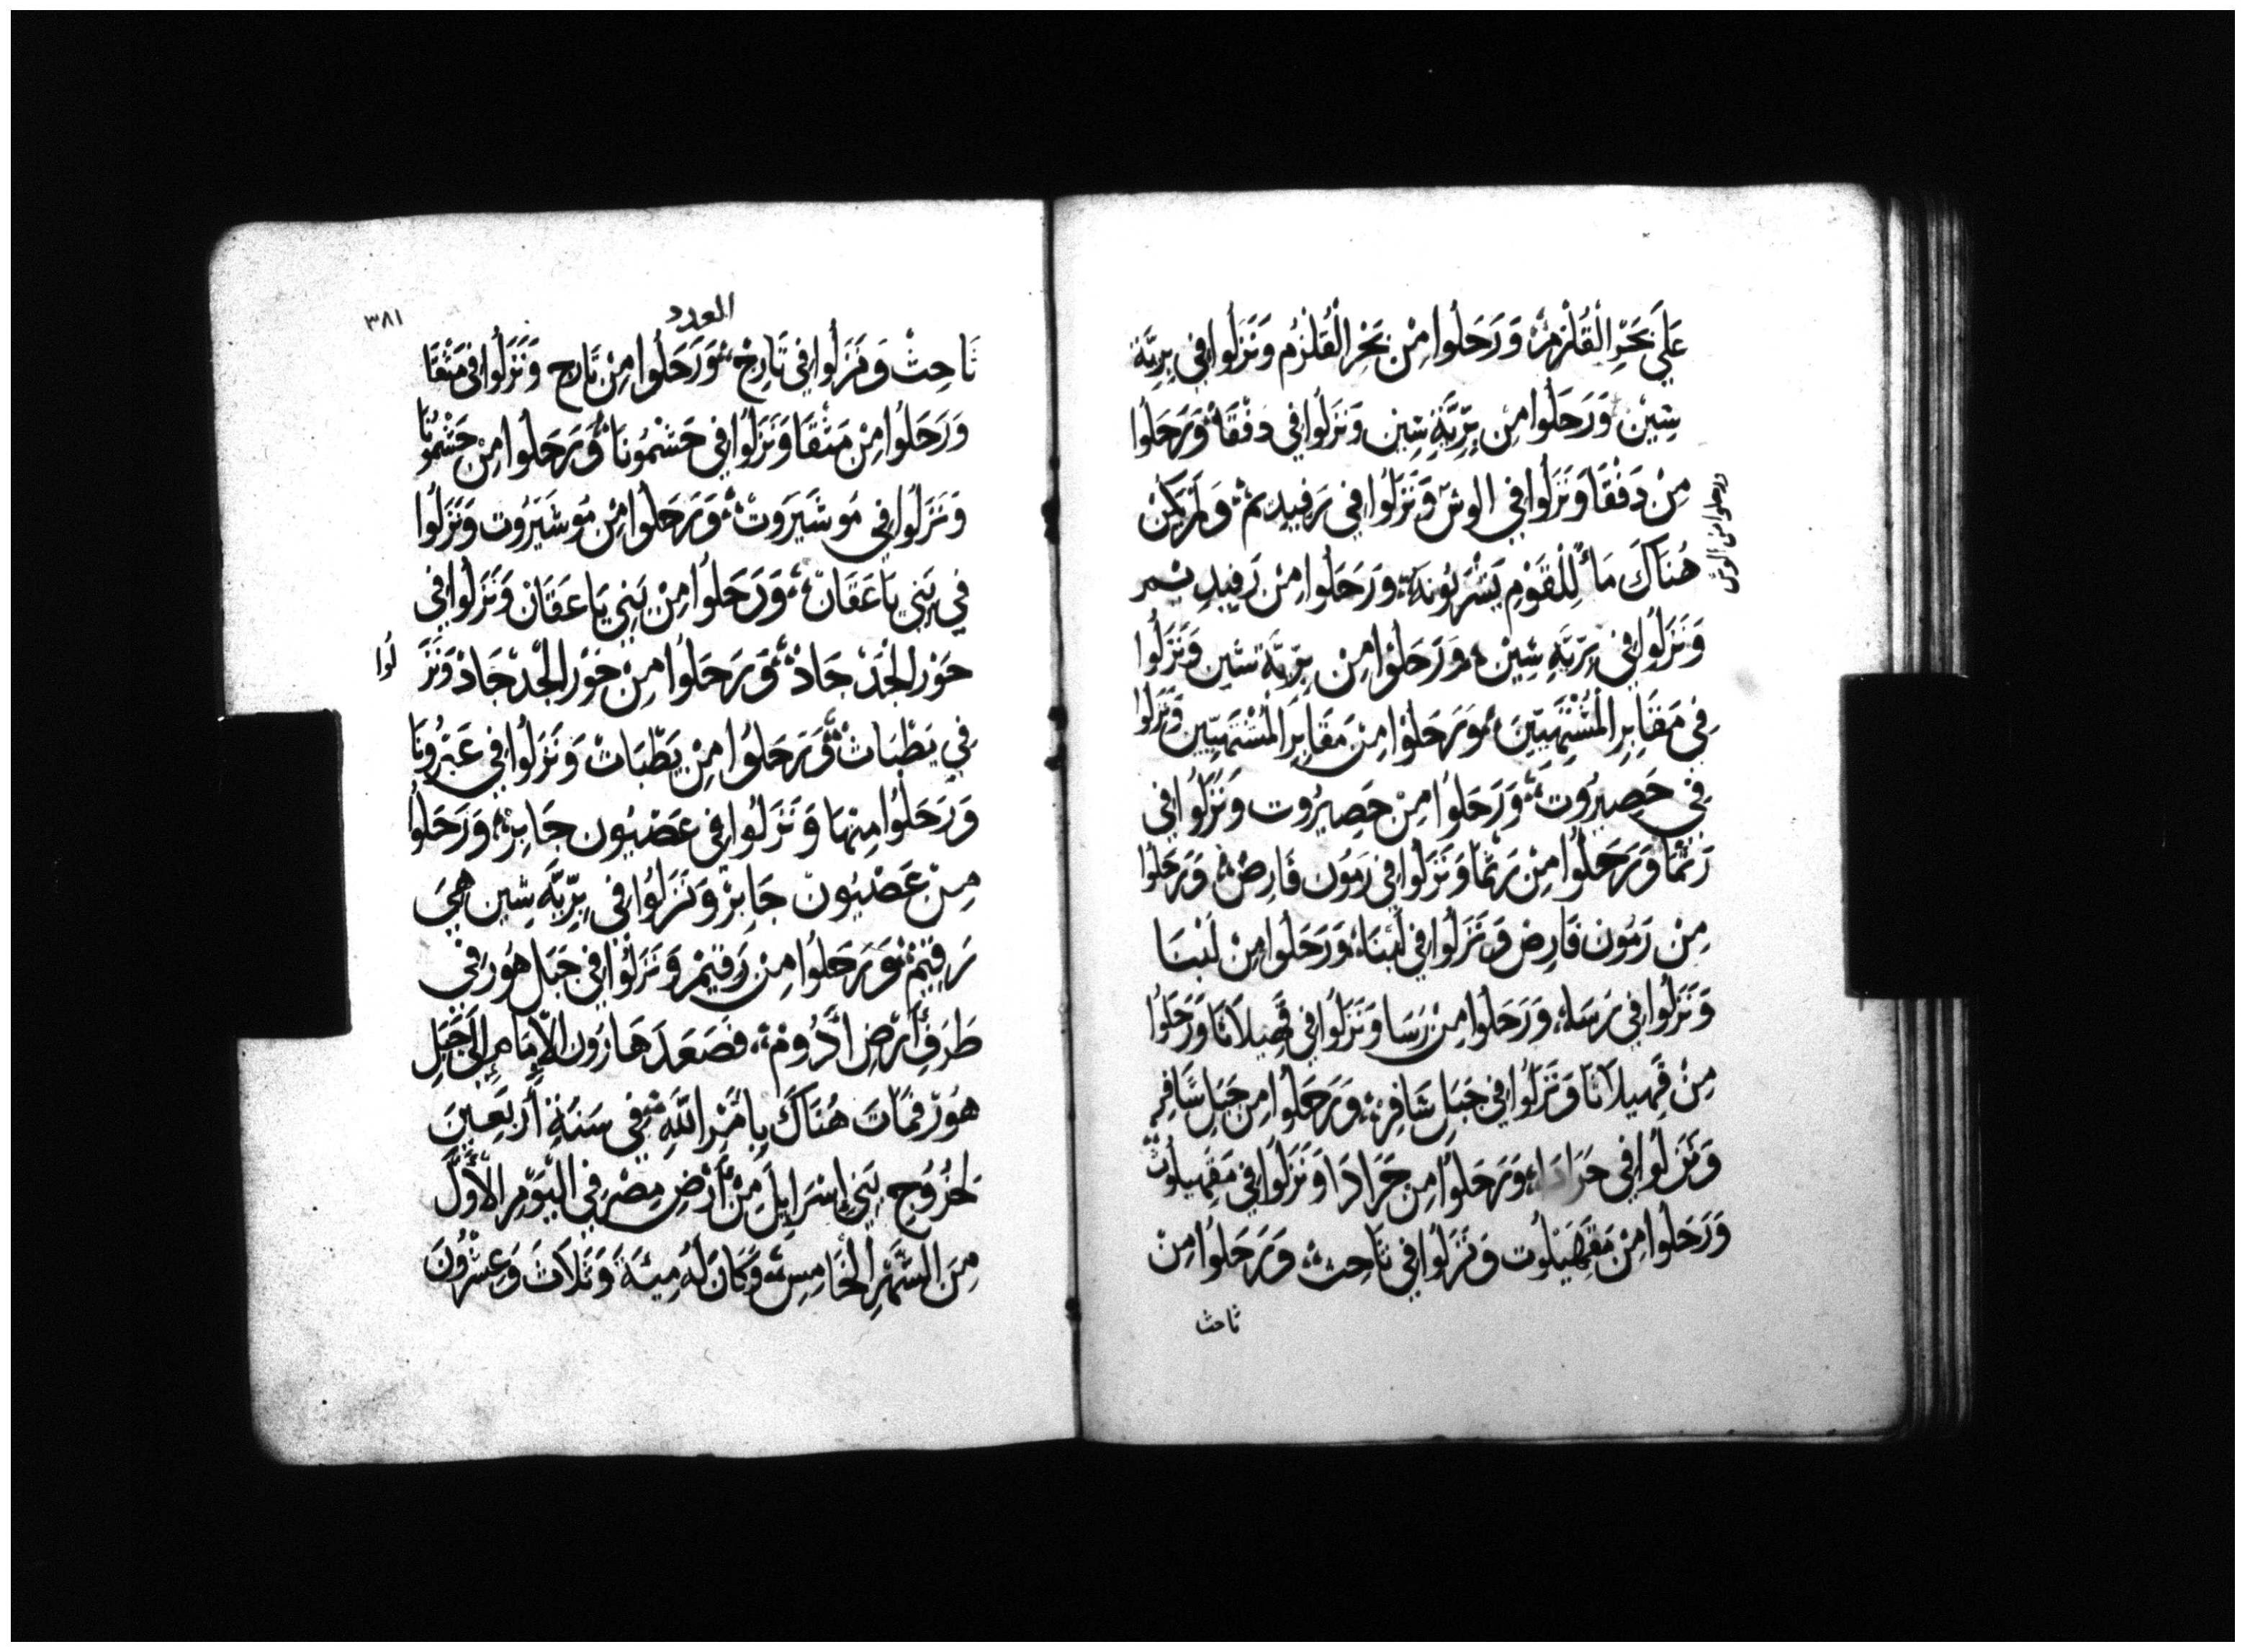 عَلَى بَحْرِ الْقُلْزِمْ وَرَحَلُوا مِنْ بَحْرِ الْقُلْزُم وَنَزَلُوا فِي بَرِيَّة
سِيْن وَرَحَلُوا مِنْ بَرِّيَّةِ سِين وَنَزَلُوا فِي دَفْقَا وَرَحَلُوا
مِنْ دَفْقَا وَنَزَلُوا فِي الوش وَنَزَلُوا فِي رَفِيديم وَلَمْ يَكُنْ
ورحلوا من الوش
هُنَاكَ مَاءٌ لِلْقَوْمِ يَشْرَبُونَهُ وَرَحَلُوا مِنْ رَفِيدِيم
وَنَزَلُوا فِي بَرِّيَّةِ سِيْن وَرَحَلُوا مِنْ بَرِّيَّة سِين وَنَزَلُوا
فِي مَقَابِرِ الْمُشْتَهِيِّينَ وَرَحَلُوْا مِنْ مَقَابِرَ الْمُشْتَهِيِّين وَنَزَلُوا
فِي حَصِيرُوت وَرَحَلُوا مِنْ حَصِيرُوت وَنَزَلُوا فِي
رَثْمَا وَرَحَلُوا مِنْ رَثْمَا وَنَزَلُوا فِي رَمُون فَارِصْ وَرَحَلُوا
مِنْ رَمُون فَارِص وَنَزَلُوا فِي لَبْنَا وَرَحَلُوا مِنْ لَبْنَا
وَنَزَلُوا فِي رَسَا وَرَحَلُوا مِنْ رَسَا وَنَزَلُوا فِي قَهِيلَاثَا وَرَحَلُوا
مِنْ قَهِيلَاثَا وَنَزَلُوا فِي جَبَلِ شَافِر وَرَحَلُوا مِن جَبَلِ شَافِر
وَنَزَلُوا فِي حَرَادَا وَرَحَلُوا مِن حَرَادَا وَنَزَلُوا فِي مَقْهِيلُوت
وَرَحَلُوا مِنْ مَقْهِيْلُوت وَنَزَلُوا فِي تَاحِثْ وَرَحَلُوا مِنْ
تاحث
العدد
٣٨١
تَاحِثْ وَنَزَلُوا فِي تَارِحْ وَرَحَلُوا مِنْ تَارِح وَنَزَلُوا فِي مَثْقَا
وَرَحَلُوا مِنْ مَثْقَا وَنَزَلُوا فِي حَشْمُونَا وَرَحَلُوا مِنْ حَشْمُونَا
وَنَزَلُوا فِي مَوشَيَروت وَرَحَلُوا مِنْ مَوشَيَرُوت وَنَزَلُوا
فِي بَنِي يَاعَقَانْ وَرَحَلُوا مِنْ بَنِي يَاعَقَانْ وَنَزَلُوا فِي
حَوْر الْجَدْجَادْ وَرَحَلُوا مِنْ حَوْر الْجَدْجَادْ وَنَزَلُوا
فِي يَطْبَاث وَرَحَلُوا مِنْ يَطْبَاتْ وَنَزَلُوا فِي عَبْرُونَا
وَرَحَلُوا مِنْهَا وَنَزَلُوا فِي عَصْيُون جَابِرْ وَرَحَلُوا
مِنْ عَصْيُون جَابِرْ وَنَزَلُوا فِي بَرِّيَّة سِين هِيَ
رَقِيم وَرَحَلُوا مِنْ رَقِيْم وَنَزَلُوا فِي جَبَل هُور فِي
طَرَفِ أَرْضِ أَدُومْ فَصَعَدَ هَارُون الْإِمَامِ إِلَى جَبَلِ
هُورْ فَمَاتَ هُنَاكَ بِأَمْرِ اللَّهِ فِي سَنَةِ أَرْبَعِينَ
لِخُرُوجِ بَنِي إِسْرَايِلَ مِنْ أَرْضِ مِصْرَ فِي الْيَوْمِ الْأَوَّل
مِنَ الشَّهْرِ الْخَامِسِ وَكَانَ لَهُ مِيئَةَ وَثَلَاثَ وَعِشْرُونَ